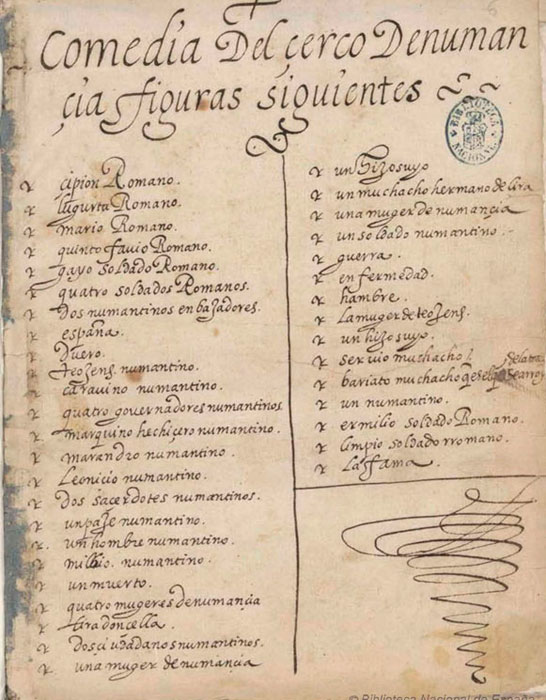 Comedia Del çerco Denuman
çia figuras siguientes
BIBLIOTECA
NACIONAL
çipion Romano.
Iugurta Romano.
mario Romano.
quinto favio Romano.
gayo soldado Romano.
quatro soldados Romanos.
Dos numantinos en baxadores.
españa.
Duero.
teozens numantino.
caravino numantino.
quatro governadores numantinos
marquino hechiçero numantino.
marandro numantino.
Leonicio numantino.
Dos sacerdotes numantinos.
un paje numantino.
un hombre numantino.
milbio. numantino.
un muerto.
quatro mugeres denumançia
lira doncella.
Dos çiudadanos numantinos.
una muger de numancia
un hijo suyo
un muchacho hermano de lira
una muger de numançia
un soldado numantino.
guerra.
enfermedad.
hambre.
La muger de teozens.
un hijo suyo.
servio muchacho
bariato muchacho
un numantino.
ermilio soldado Romano.
limpio soldado rromano.
La fama
© Biblioteca Nacional de España